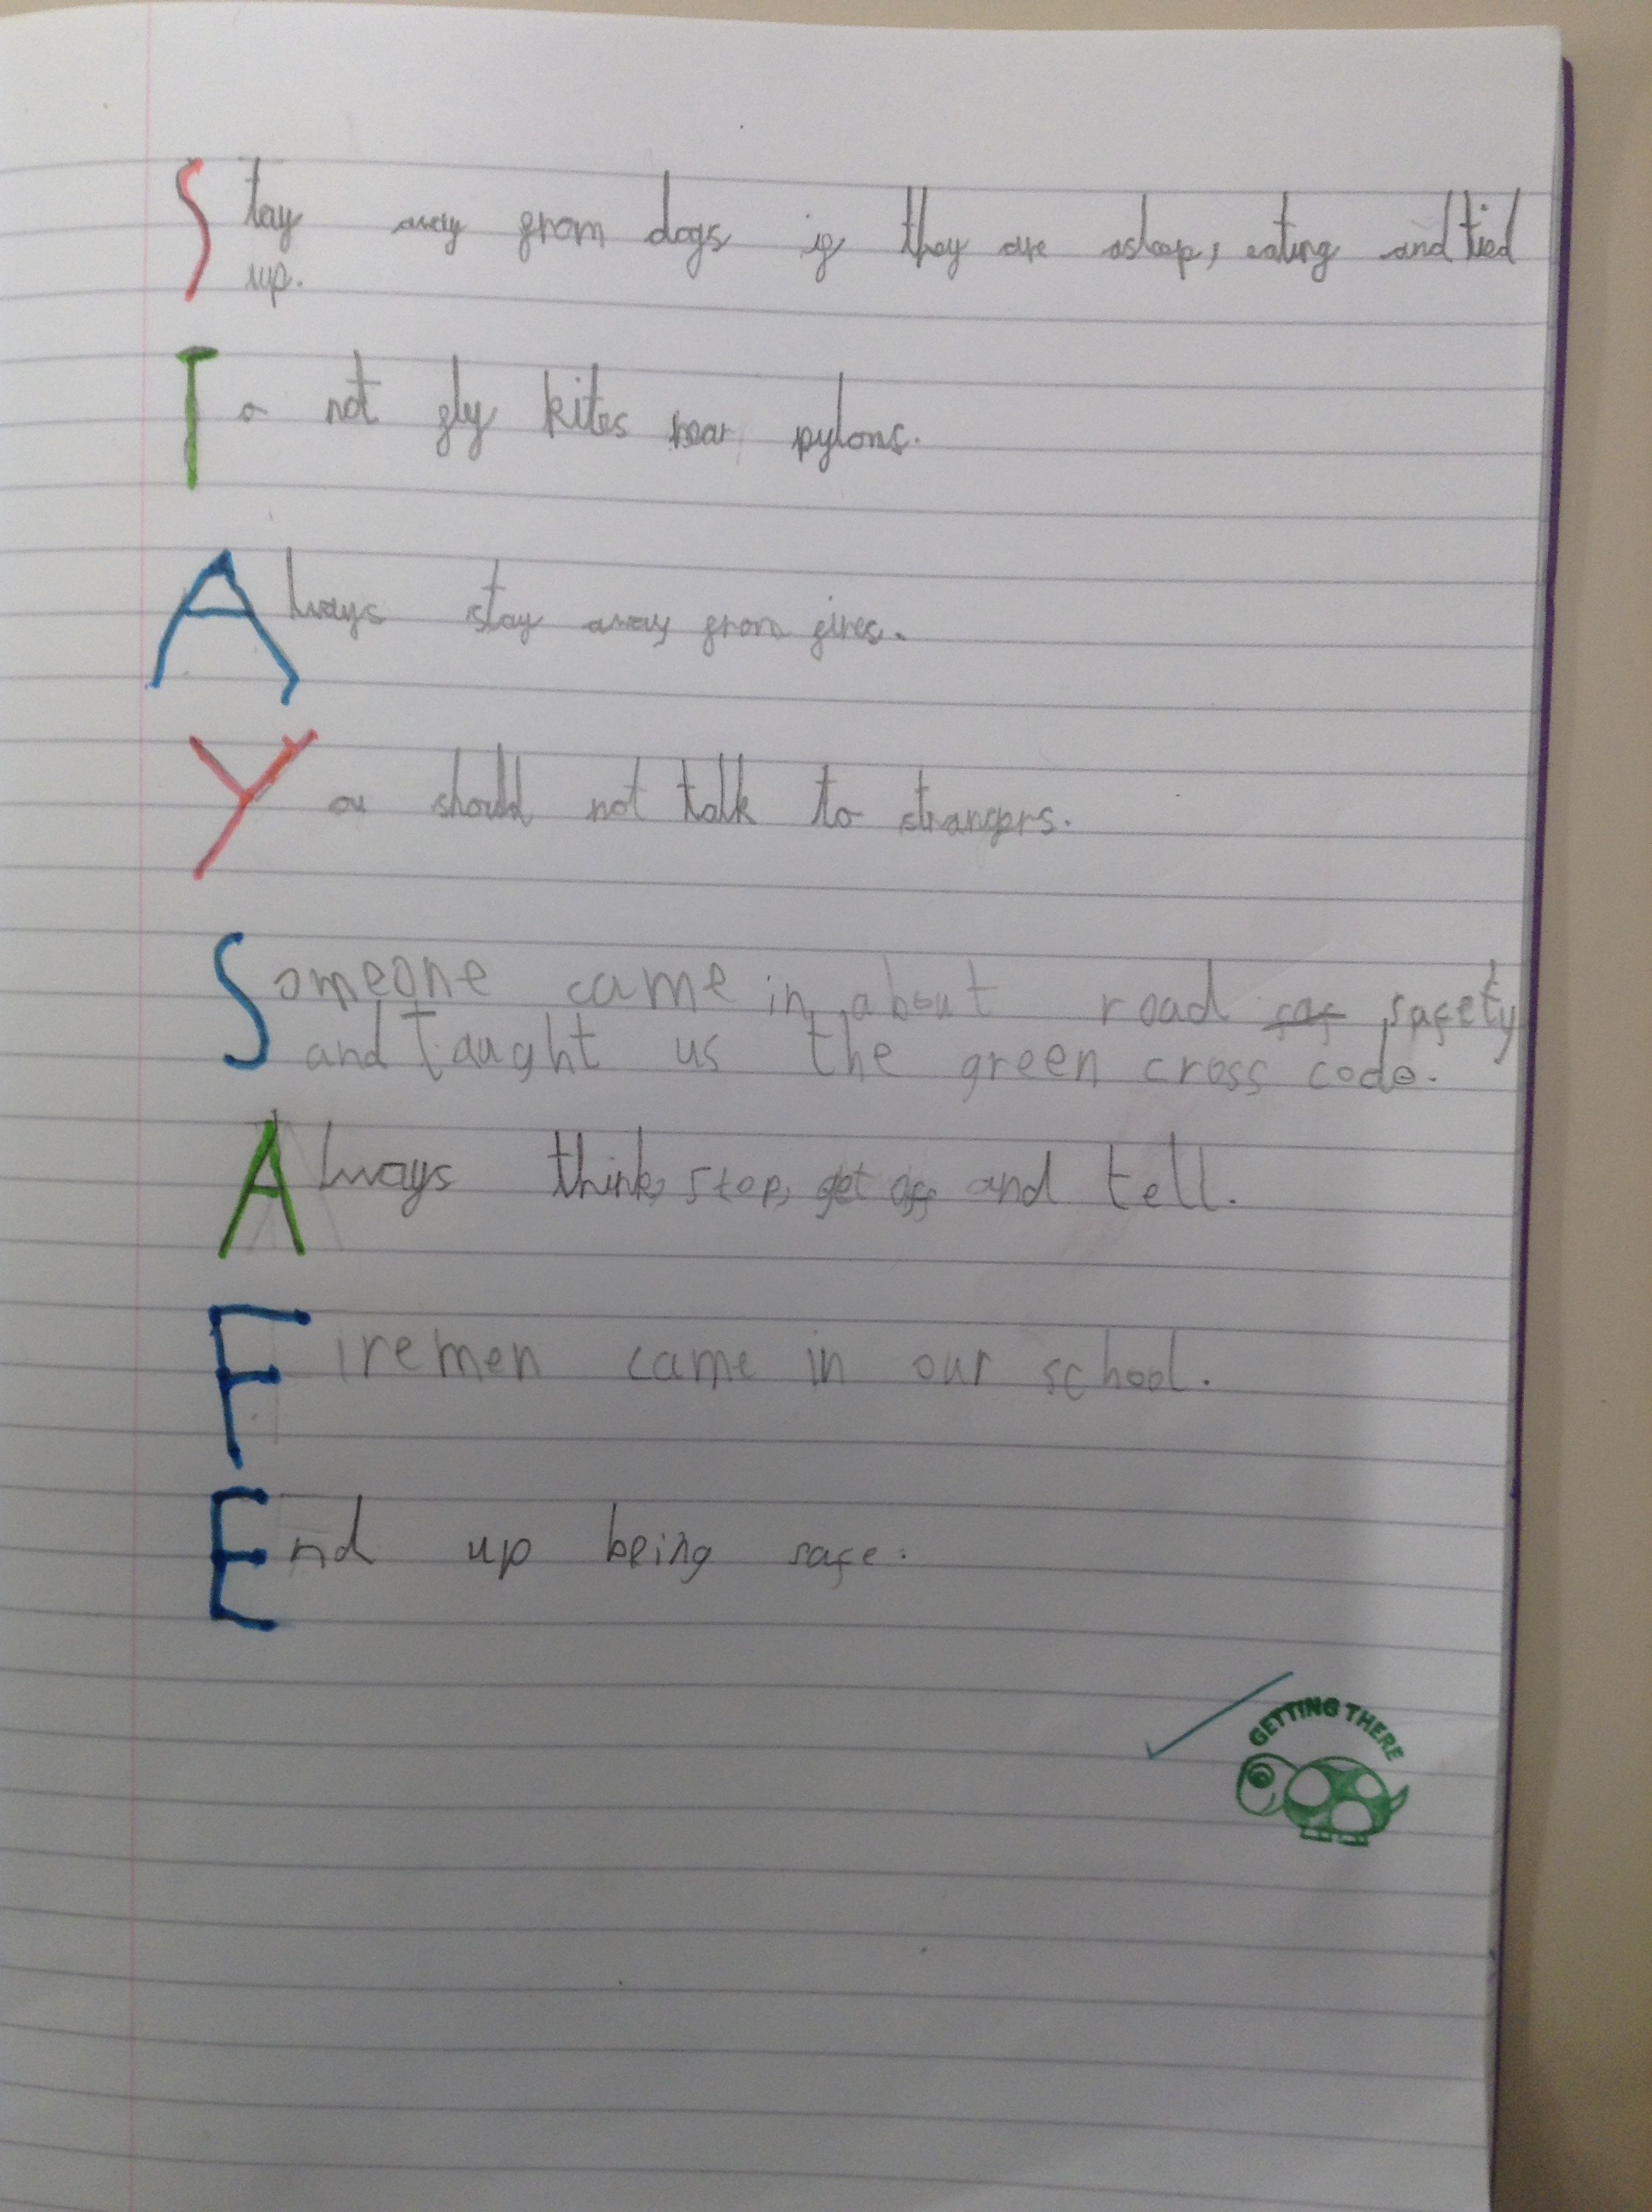 Stay away from dogs if they are asleep, eating and tied
up.
To not fly kites near pylons.
Always stay away from fires.
You should not talk to strangers.
Someone came in about road saf safety
and taught us the green cross code.
Always think, stop, get off and tell.
Firemen came in our school.
End up being safe.
GETTING THERE